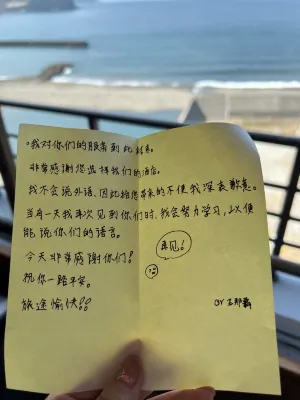 。我对你们的服务到此结束。
非常感谢您选择我们的酒店。
我不会说外语、因此给您带来的不便我深表歉意。
当有一天我再次见到你们时、我会努力学习、以便
能说你们的语言。
今天非常感谢你们！
祝你一路平安。
旅途愉快!!
再见！
by